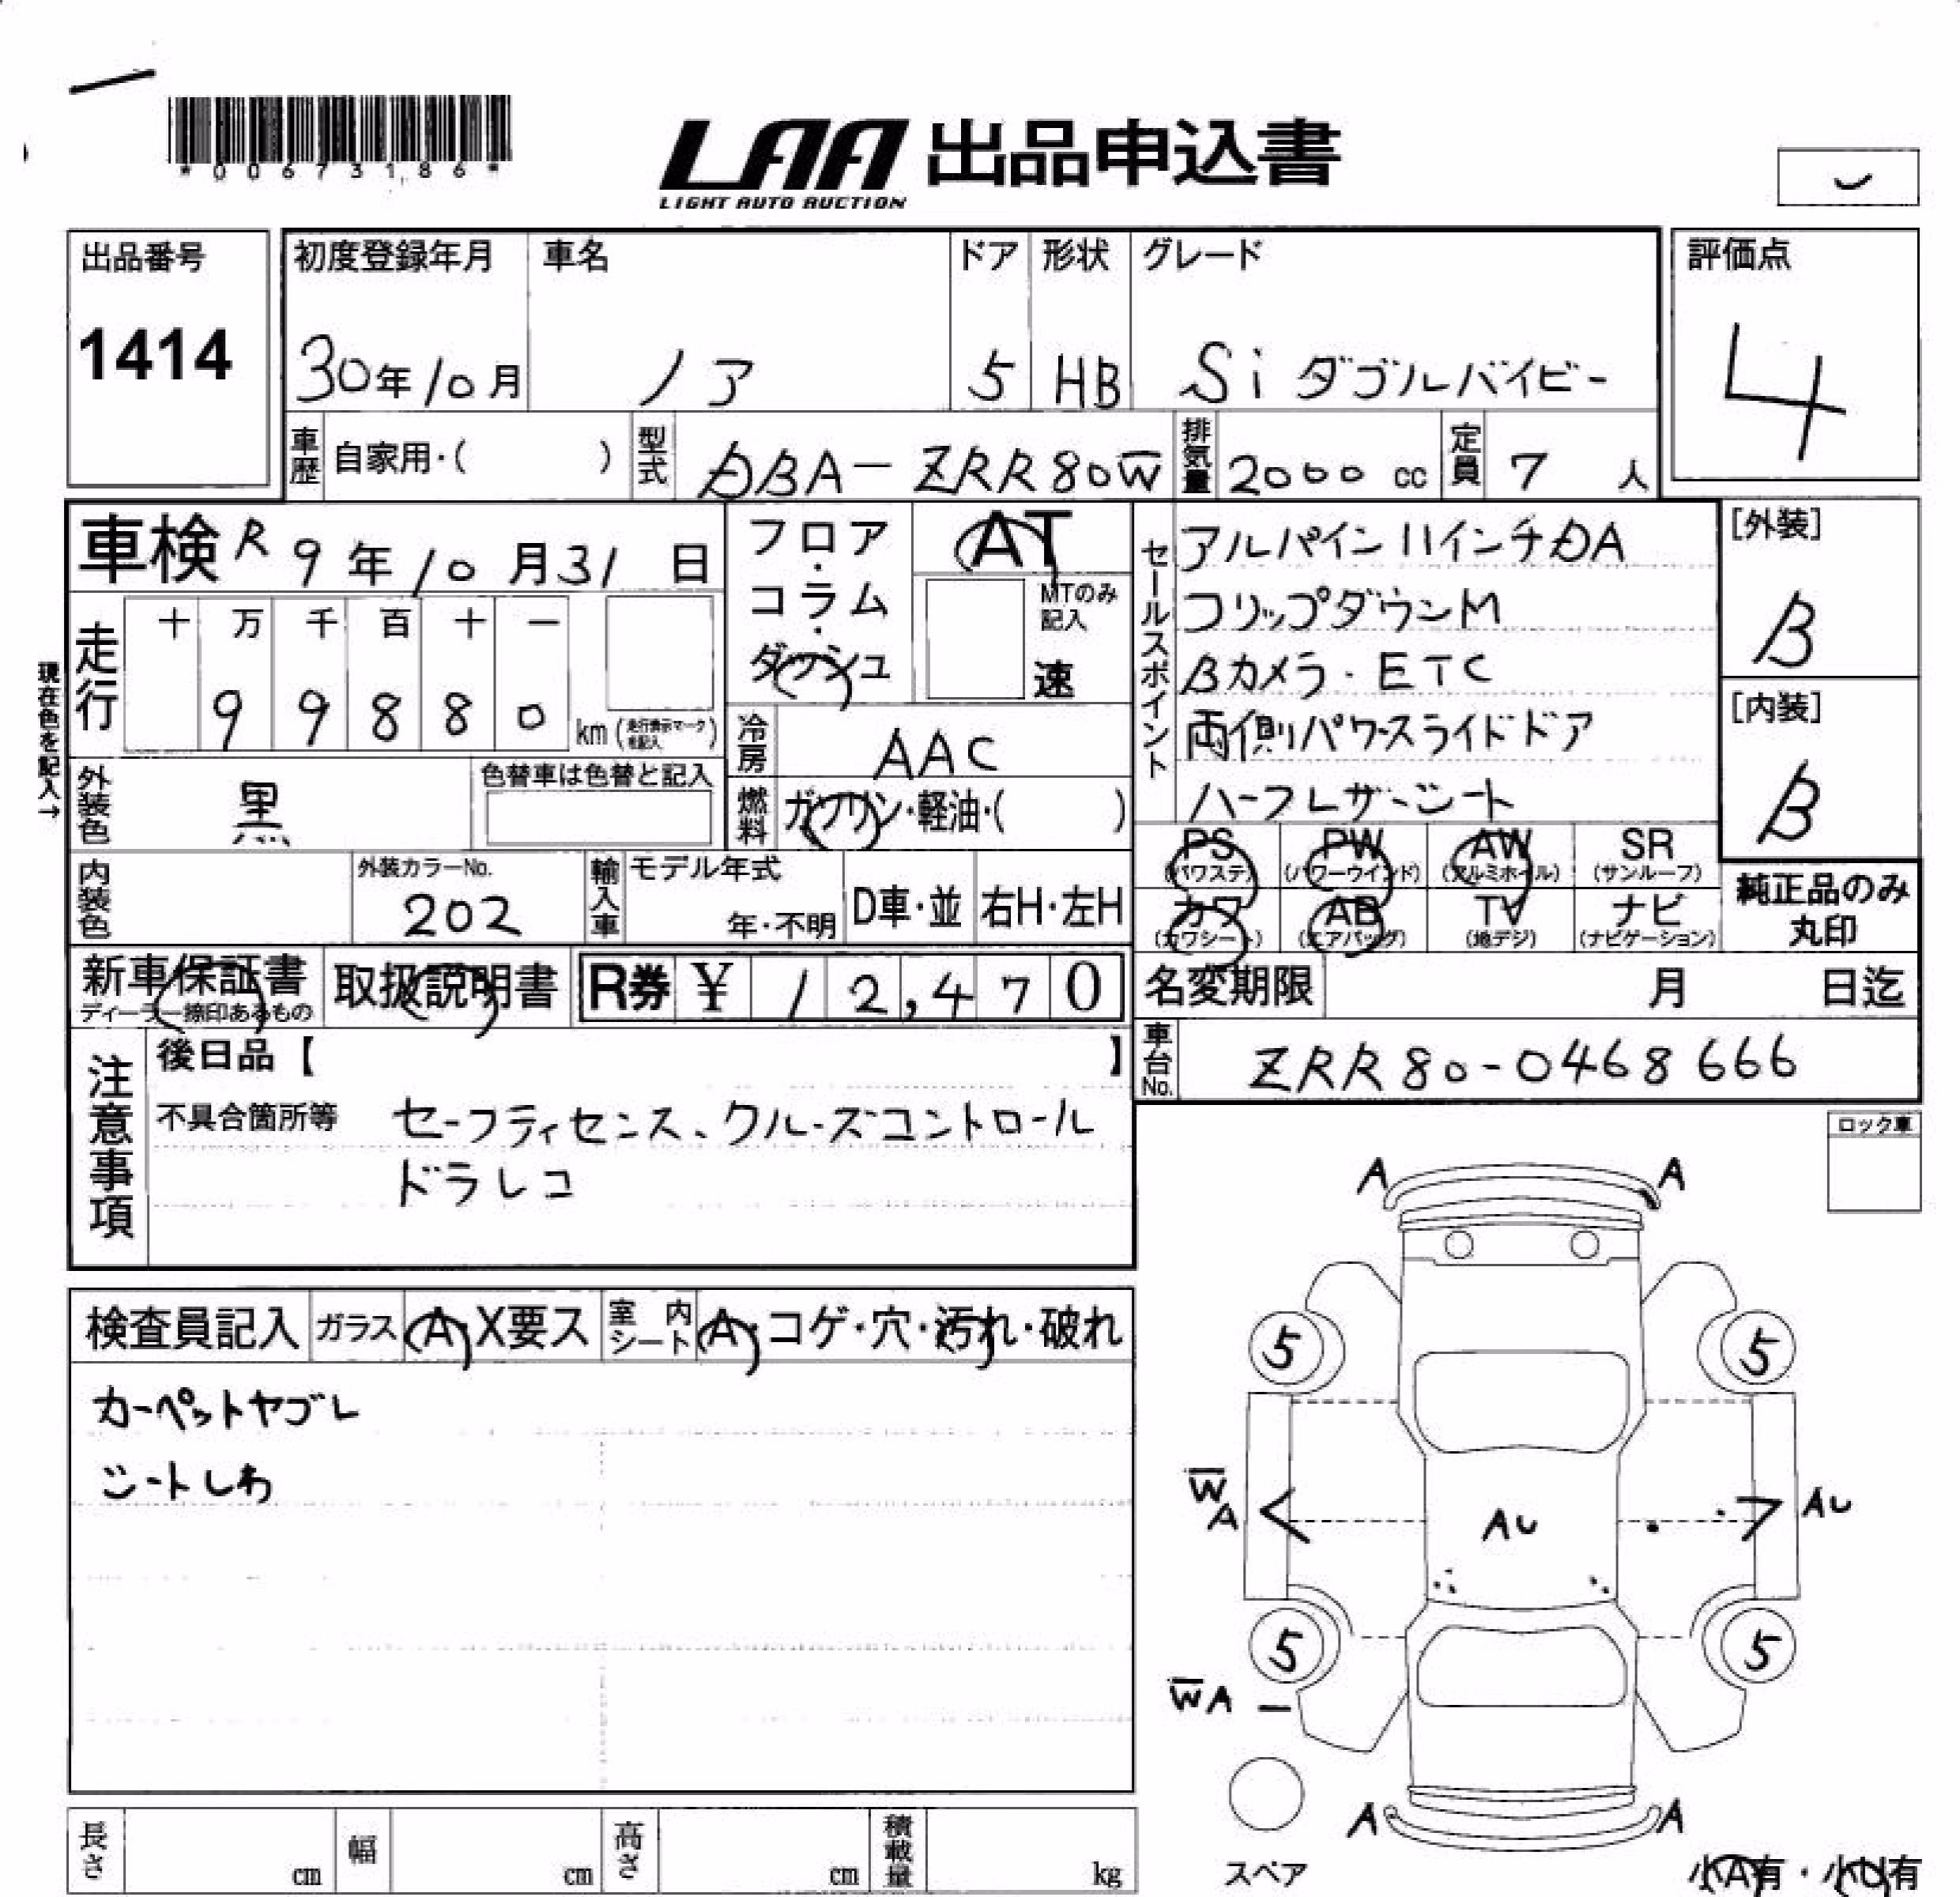 *00673186*
LAA 出品申込書
LIGHT AUTO AUCTION
出品番号
1414
初度登録年月
30年10月
車名
ノア
ドア
5
形状
HB
グレード
Si ダブルバイビー
評価点
4
車歴 自家用・( )
型式 DBA-ZRR80W
排気量 2000 cc
定員 7 人
車検 R9年10月31日
フロア・コラム・ダッシュ
AT
MTのみ記入
速
セールスポイント
アルパイン11インチDA
フリップダウンM
Bカメラ・ETC
両側パワースライドドア
ハーフレザーシート
[外装]
B
[内装]
B
現在色を記入→
走行
十 万 千 百 十 一
99880 km
冷房 AAC
燃料 ガソリン・軽油・( )
外装色 黒
色替車は色替と記入
内装色
外装カラーNo.
202
輸入車
モデル年式
年・不明
D車・並
右H・左H
PS (パワステ)
PW (パワーウインド)
AW (アルミホイル)
SR (サンルーフ)
カワ (カワシート)
AB (エアバッグ)
TV (地デジ)
ナビ (ナビゲーション)
純正品のみ
丸印
新車保証書
ディーラー捺印あるもの
取扱説明書
R券 ¥ 12,470
名変期限 月 日迄
車台No. ZRR80-0468666
注意事項
後日品【 】
不具合箇所等 セーフティセンス、クルーズコントロール
ドラレコ
ロック車
検査員記入
ガラス A・X要ス
室内シート A・コゲ・穴・汚れ・破れ
カーペットヤブレ
シートしわ
A A
5 5
W
A
AU
AU
5 5
WA
A A
スペア
小A有・小U有
長さ cm
幅 cm
高さ cm
積載量 kg